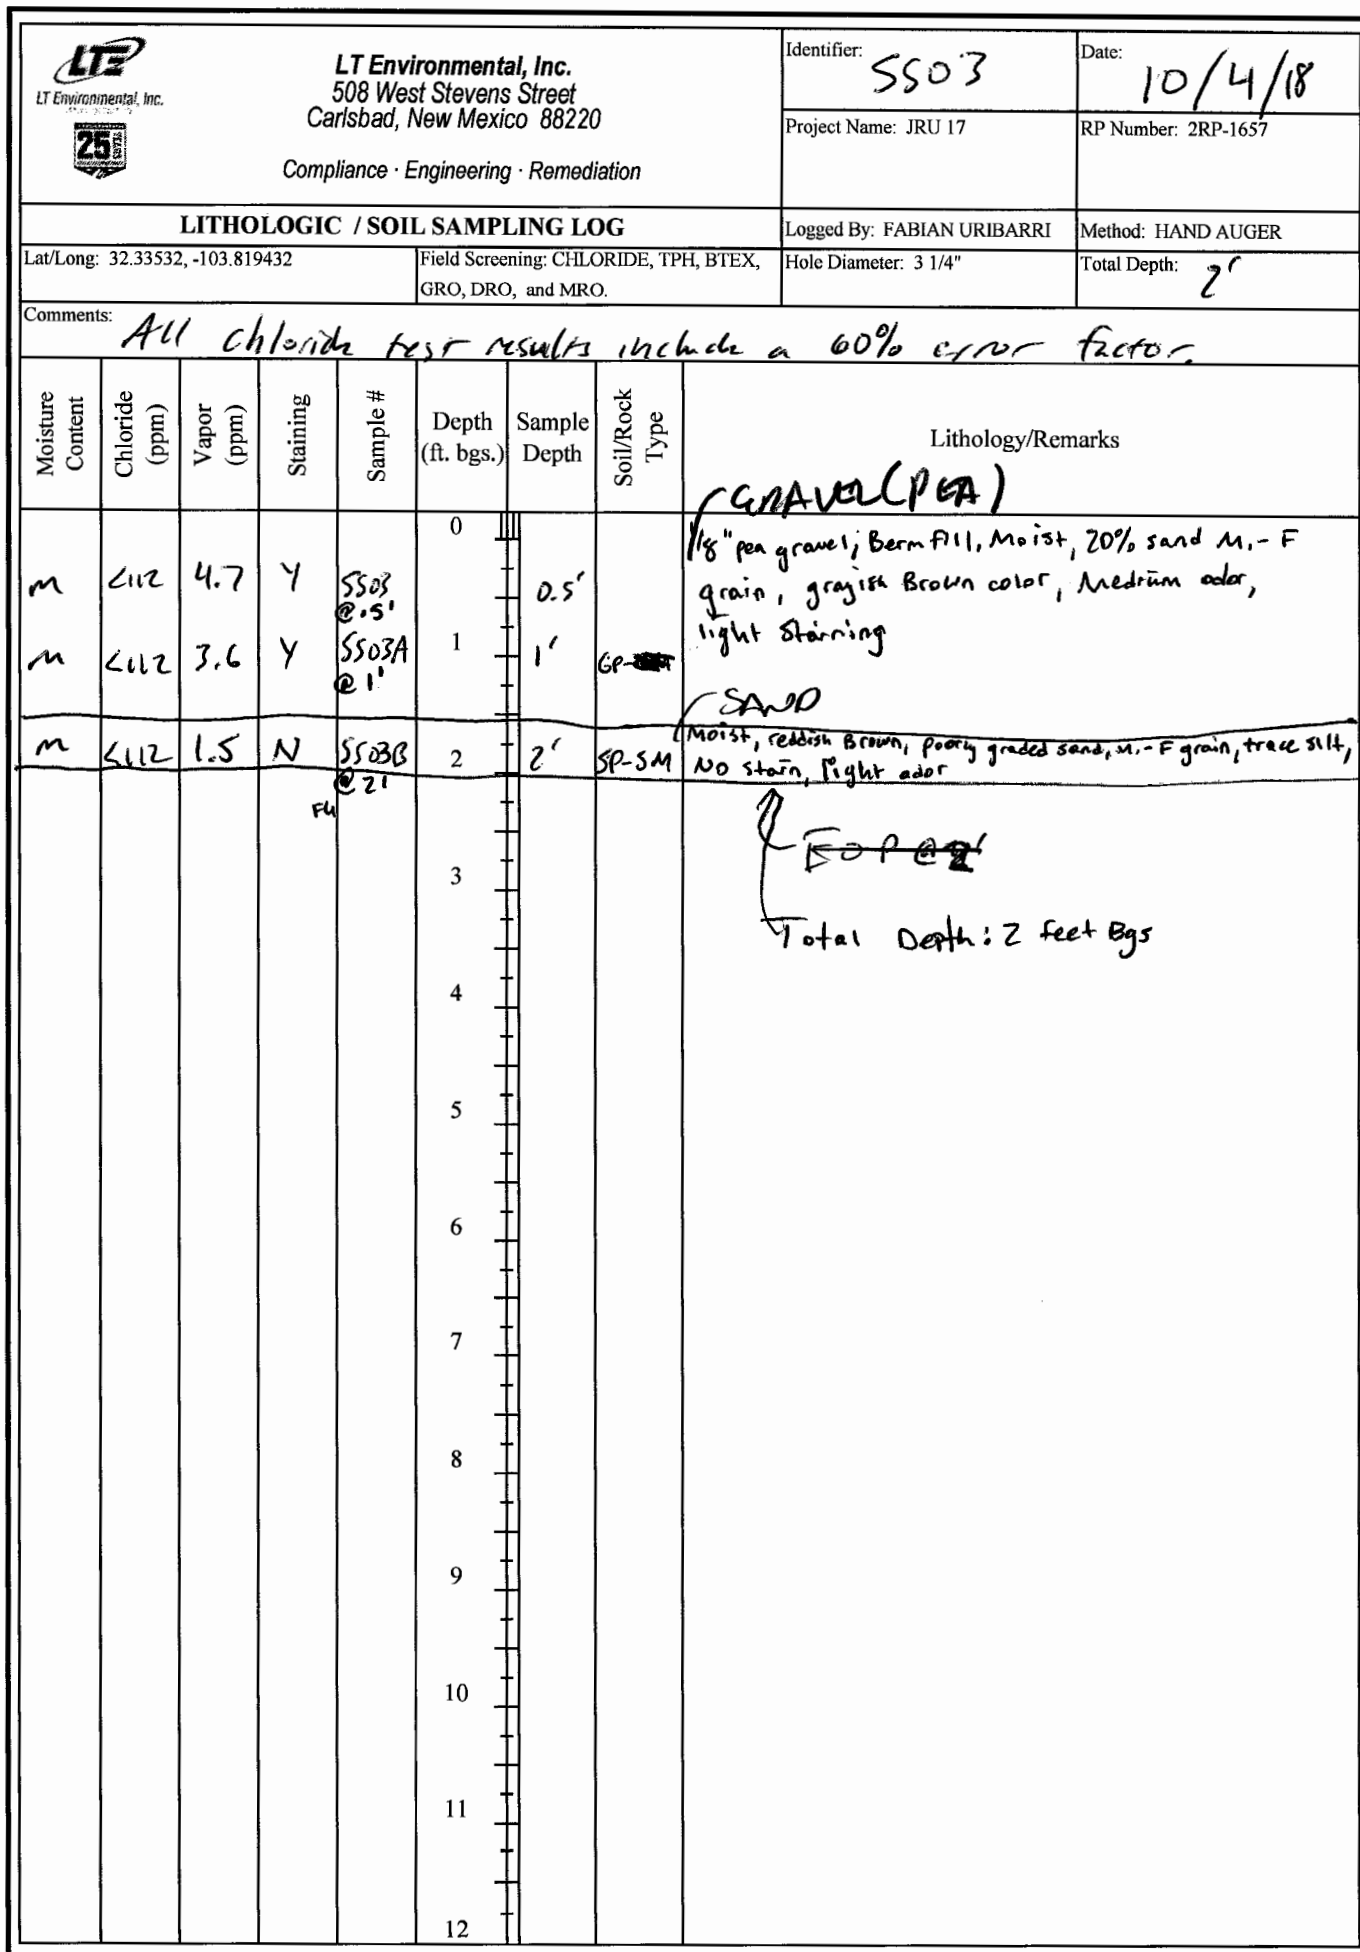 LTE
LT Environmental, Inc.
25 YEARS
LT Environmental, Inc.
508 West Stevens Street
Carlsbad, New Mexico 88220
Compliance · Engineering · Remediation
Identifier: SS03
Date: 10/4/18
Project Name: JRU 17
RP Number: 2RP-1657
LITHOLOGIC / SOIL SAMPLING LOG
Logged By: FABIAN URIBARRI
Method: HAND AUGER
Lat/Long: 32.33532, -103.819432
Field Screening: CHLORIDE, TPH, BTEX,
GRO, DRO, and MRO.
Hole Diameter: 3 1/4"
Total Depth: 2'
Comments: All chloride test results include a 60% error factor.
Moisture Content
Chloride (ppm)
Vapor (ppm)
Staining
Sample #
Depth (ft. bgs.)
Sample Depth
Soil/Rock Type
Lithology/Remarks
GRAVEL (PEA)
0
1/8" pea gravel; Berm fill, Moist, 20% sand M.-F
M <112 4.7 Y SS03 @ .5' 0.5' grain, grayish Brown color, Medium odor,
light Staining
M <112 3.6 Y SS03A @ 1' 1 1' GP-
SAND
Moist, reddish Brown, poorly graded sand, M.-F grain, trace silt,
M <112 1.5 N SS03B @ 2' 2 2' SP-SM No stain, light odor
FU
EOP @ 2'
3
Total Depth: 2 feet Bgs
4
5
6
7
8
9
10
11
12